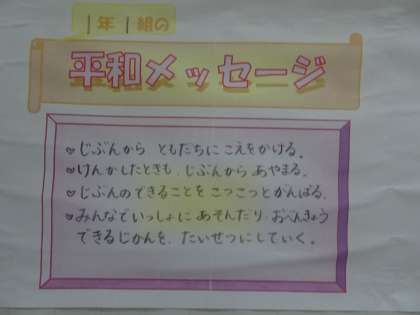 1年1組の
平和メッセージ
♡じぶんから ともだちに こえをかける。
♡けんかしたときも、じぶんから あやまる。
♡じぶんのできることを こつこつとがんばる。
♡みんなでいっしょに あそんだり、おべんきょう
できるじかんを、たいせつにしていく。